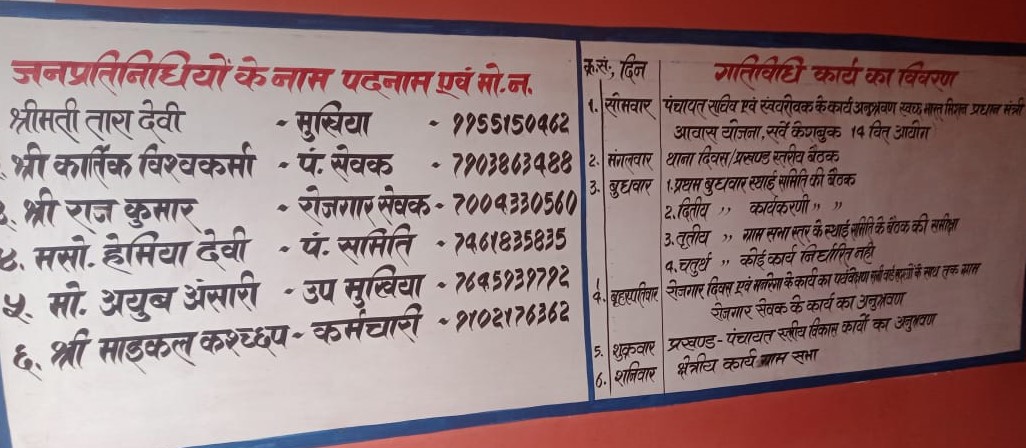 जनप्रतिनिधियों के नाम पदनाम एवं मो.न.
श्रीमती तारा देवी - मुखिया - 9955150462
श्री कार्तिक विश्वकर्मा - पं. सेवक - 7903863488
श्री राज कुमार - रोजगार सेवक - 7004330560
४. मसो. हेमिया देवी - पं. समिति - 7461835835
५. मो. अयुब अंसारी - उप मुखिया - 7645939792
६. श्री माइकल कश्च्छप - कर्मचारी - 9102176362
क्र.सं. दिन गतिविधि कार्य का विवरण
1. सोमवार पंचायत सचिव एवं स्वंयसेवक के कार्य अनुश्रवण स्वच्छ भारत मिशन प्रधान मंत्री
आवास योजना, सर्वे केशबुक 14 वित्त आयोग
2. मंगलवार थाना दिवस/प्रखण्ड स्तरीय बैठक
3. बुधवार 1. प्रथम बुधवार स्थाई समिति की बैठक
2. द्वितीय ,, कार्यकरणी ,, ,,
3. तृतीय ,, ग्राम सभा स्तर के स्थाई समिति के बैठक की समीक्षा
4. चतुर्थ ,, कोई कार्य निर्धारित नही
4. बृहस्पतिवार रोजगार दिवस एवं मनरेगा के कार्य का पर्यवेक्षण सभी वार्ड सदस्यों के साथ तक ग्राम
रोजगार सेवक के कार्य का अनुश्रवण
5. शुक्रवार प्रखण्ड - पंचायत स्तरीय विकास कार्यो का अनुश्रवण
6. शनिवार क्षेत्रीय कार्य ग्राम सभा